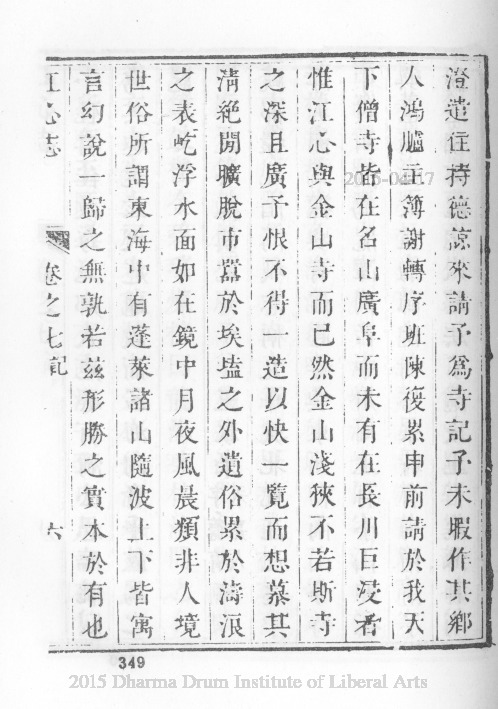 澄遣住持德諒來請予爲寺記予未暇作其鄉
人鴻臚主簿謝轉序班陳復累申前請於我天
下僧寺皆在名山廣阜而未有在長川巨浸者
惟江心與金山寺而已然金山淺狹不若斯寺
之深且廣予恨不得一造以快一覽而想慕其
淸絕開曠脫市囂於埃壒之外遺俗累於濤浪
之表屹浮水面如在鏡中月夜風晨類非人境
世俗所謂東海中有蓬萊諸山隨波上下皆寓
言幻說一歸之無孰若茲形勝之實本於有也
江心志 卷之七記 六
349
2015 Dharma Drum Institute of Liberal Arts